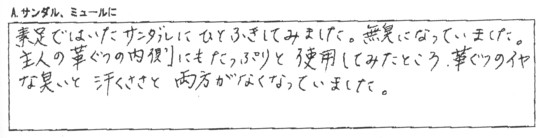 A.サンダル、ミュールに
素足ではいたサンダルにひとふきしてみました。無臭になっていました。
主人の革ぐつの内側にもたっぷりと使用してみたところ、革ぐつのイヤ
な臭いと汗くささと両方がなくなっていました。